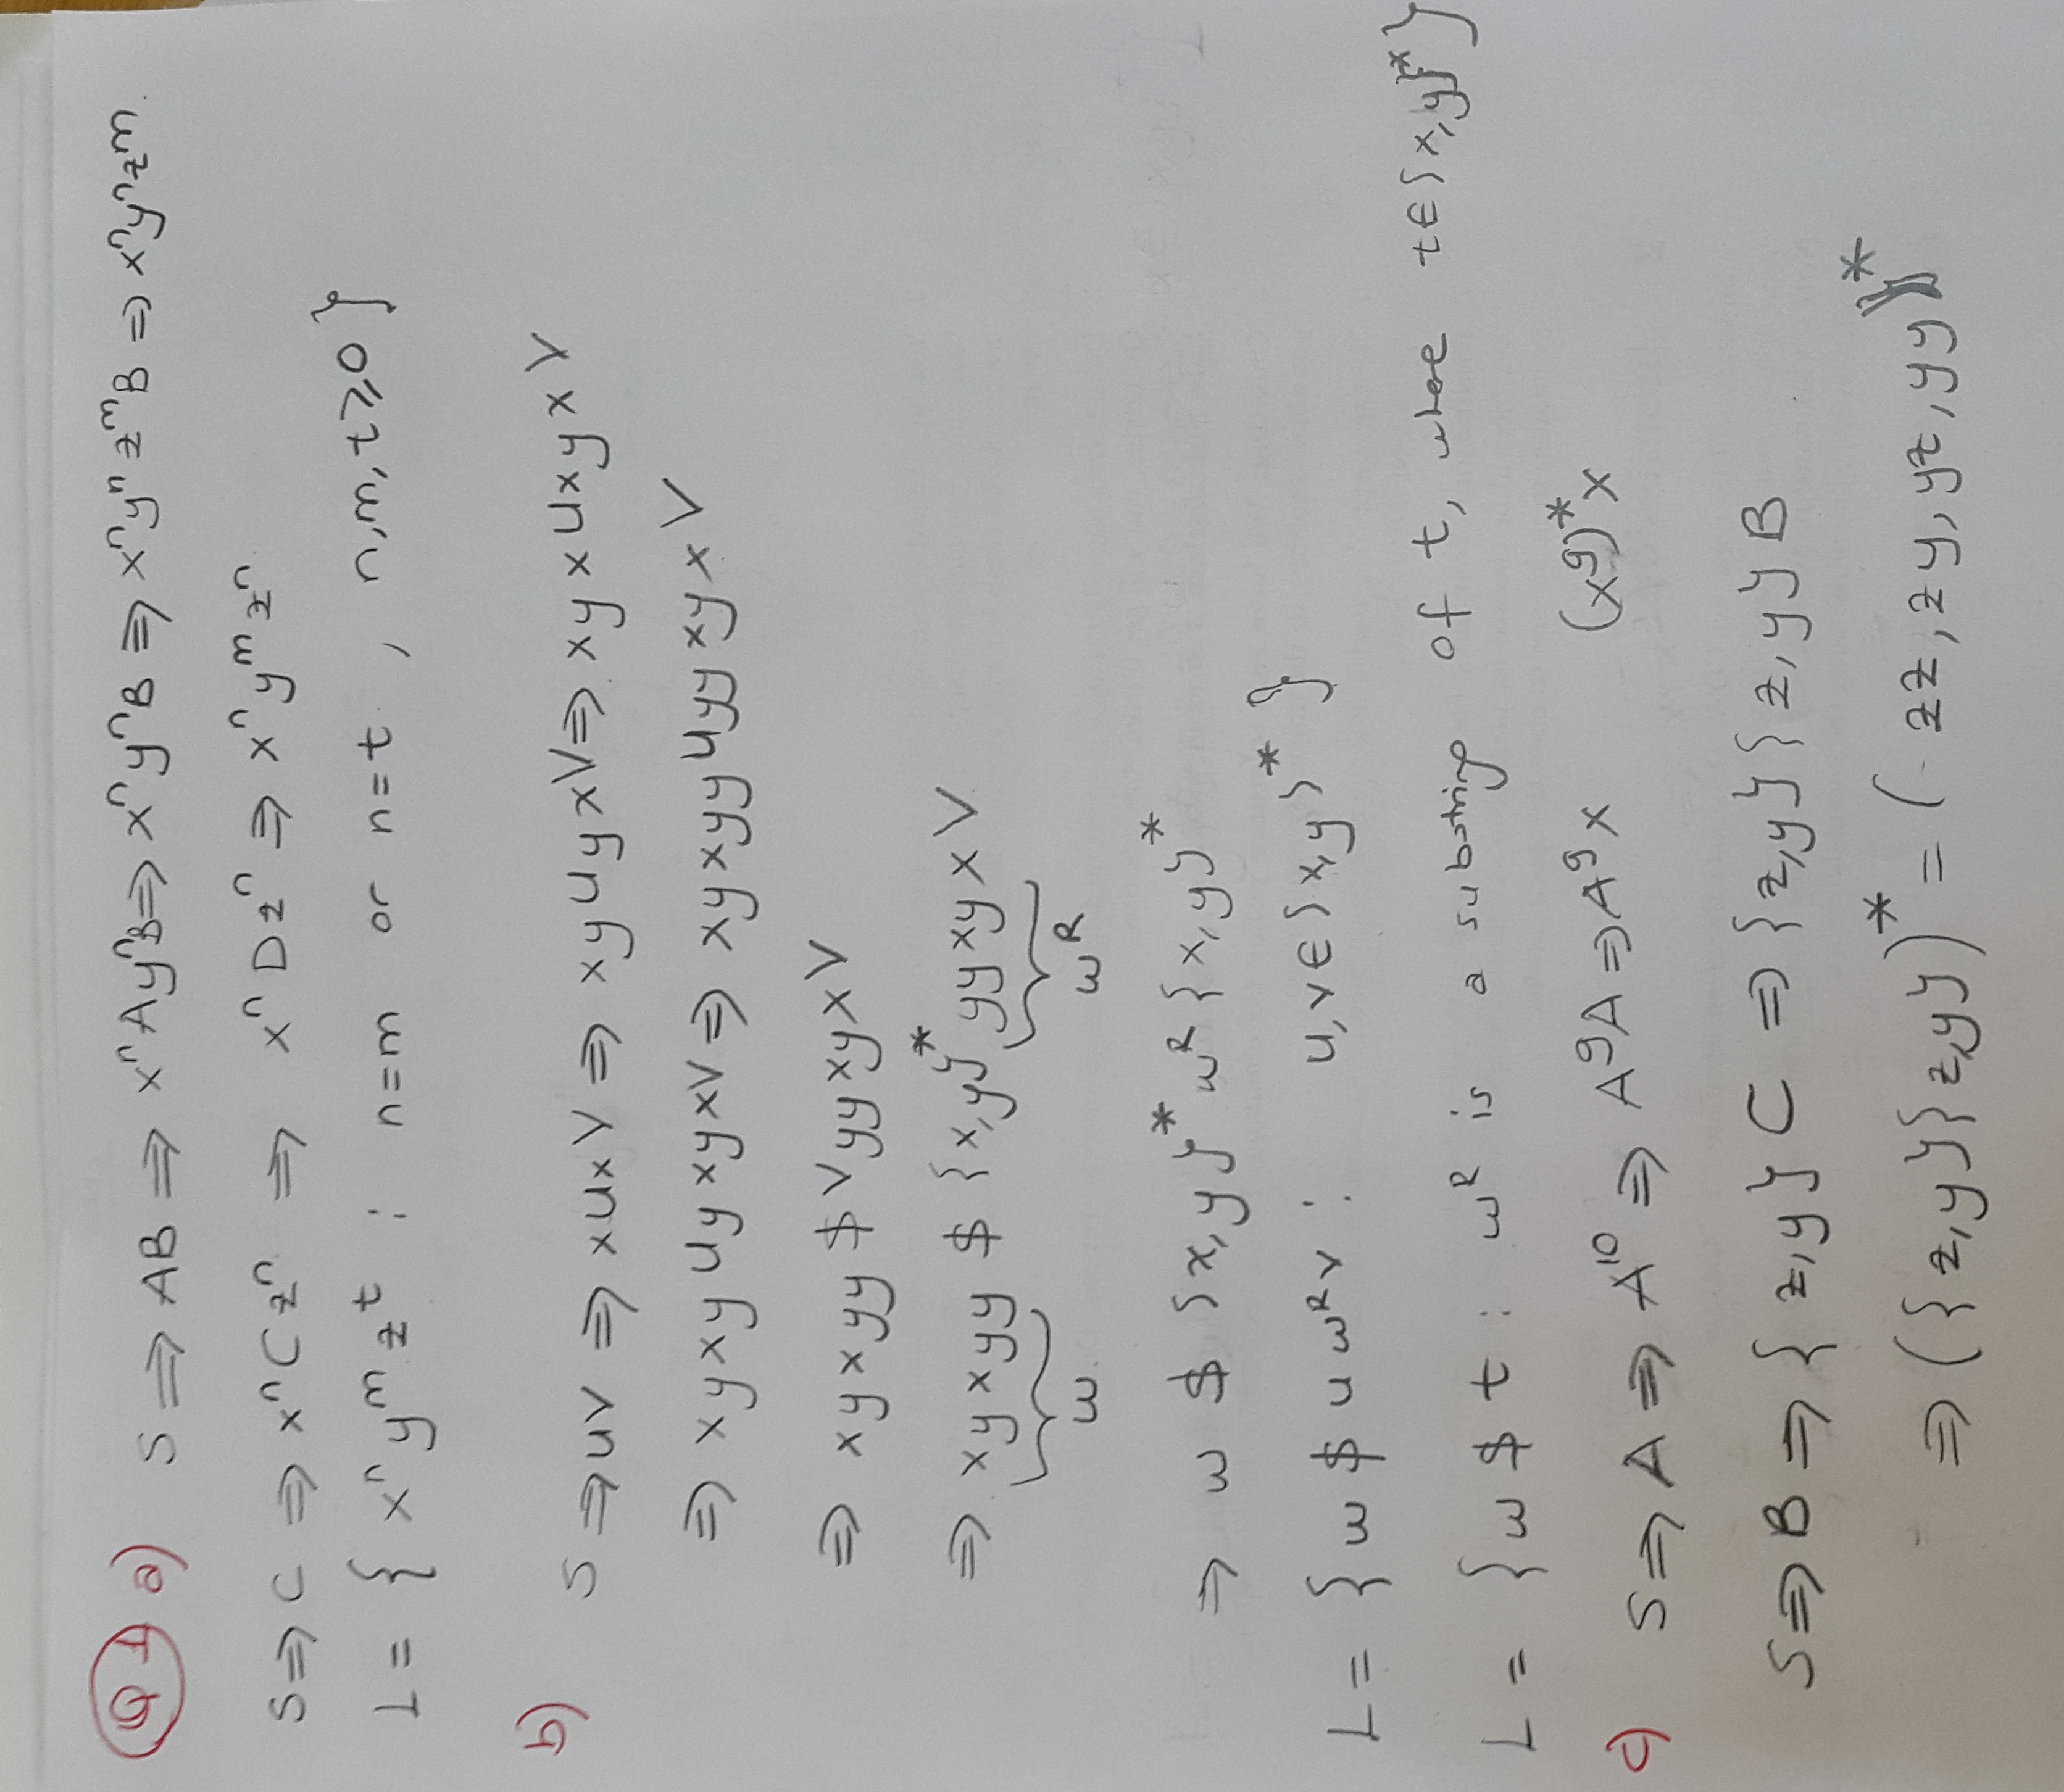 Q1 a) S ⇒ AB ⇒ xⁿAyⁿB ⇒ xⁿyⁿB ⇒ xⁿyⁿzᵐB ⇒ xⁿyⁿzᵐ.
S ⇒ C ⇒ xⁿCzⁿ ⇒ xⁿDzⁿ ⇒ xⁿyᵐzⁿ
L = { xⁿyᵐzᵗ : n=m or n=t , n,m,t≥0 }
b) S ⇒ UV ⇒ xUxV ⇒ xyUyxV ⇒ xyxUxyxV
⇒ xyxyUyxyxV ⇒ xyxyyUyyxyxV
⇒ xyxyy$VyyxyxV
⇒ xyxyy $ {x,y}* yyxyxV
w. wᴿ
⇒ w $ {x,y}* wᴿ {x,y}*
L = { w $ u wᴿ v : u,v ∈ {x,y}* }
L = { w $ t : wᴿ is a substring of t, where t ∈ {x,y}* }
c) S ⇒ A ⇒ A¹⁰ ⇒ A⁹A ⇒ A⁹x (x⁹)*x
S ⇒ B ⇒ {z,y}C ⇒ {z,y}{z,y}B
⇒ ({z,y}{z,y})* = (zz, zy, yz, yy)*